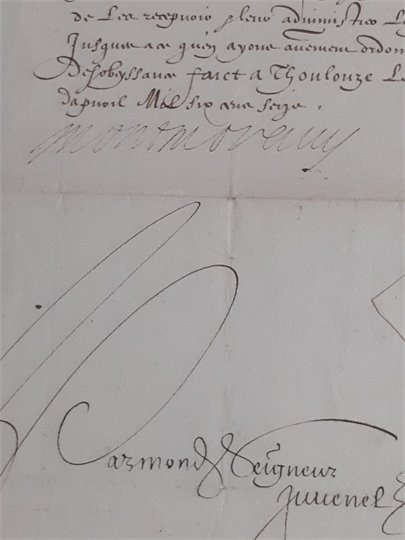 de Les recepvoir & leur administrer
Jusques a ce quen ayons aultrement ordonn
Desobeyssance faict a Thoulouze Le
dapvril Mil six cens seize .
Montmorancy
Par mond Seigneur
Juvenel